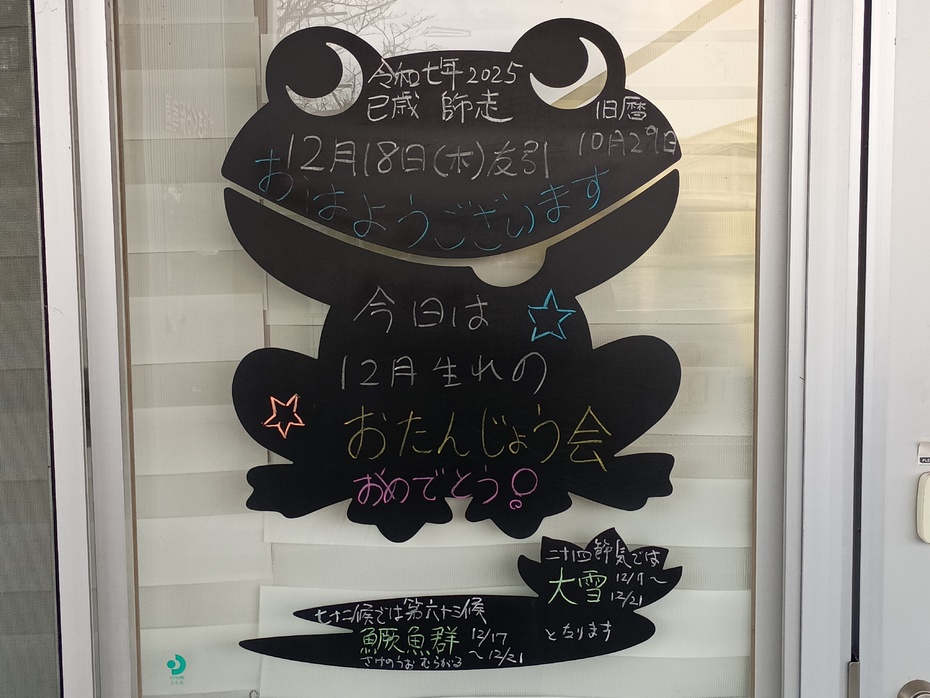 令和七年 2025
巳歳 師走
旧暦
10月29日
12月18日(木)友引
おはようございます
今日は
12月生れの
おたんじょう会
おめでとう!
二十四節気では
大雪 12/7〜
12/21
となります
七十二候では第六十三候
鱖魚群 12/17
〜12/21
さけのうお むらがる